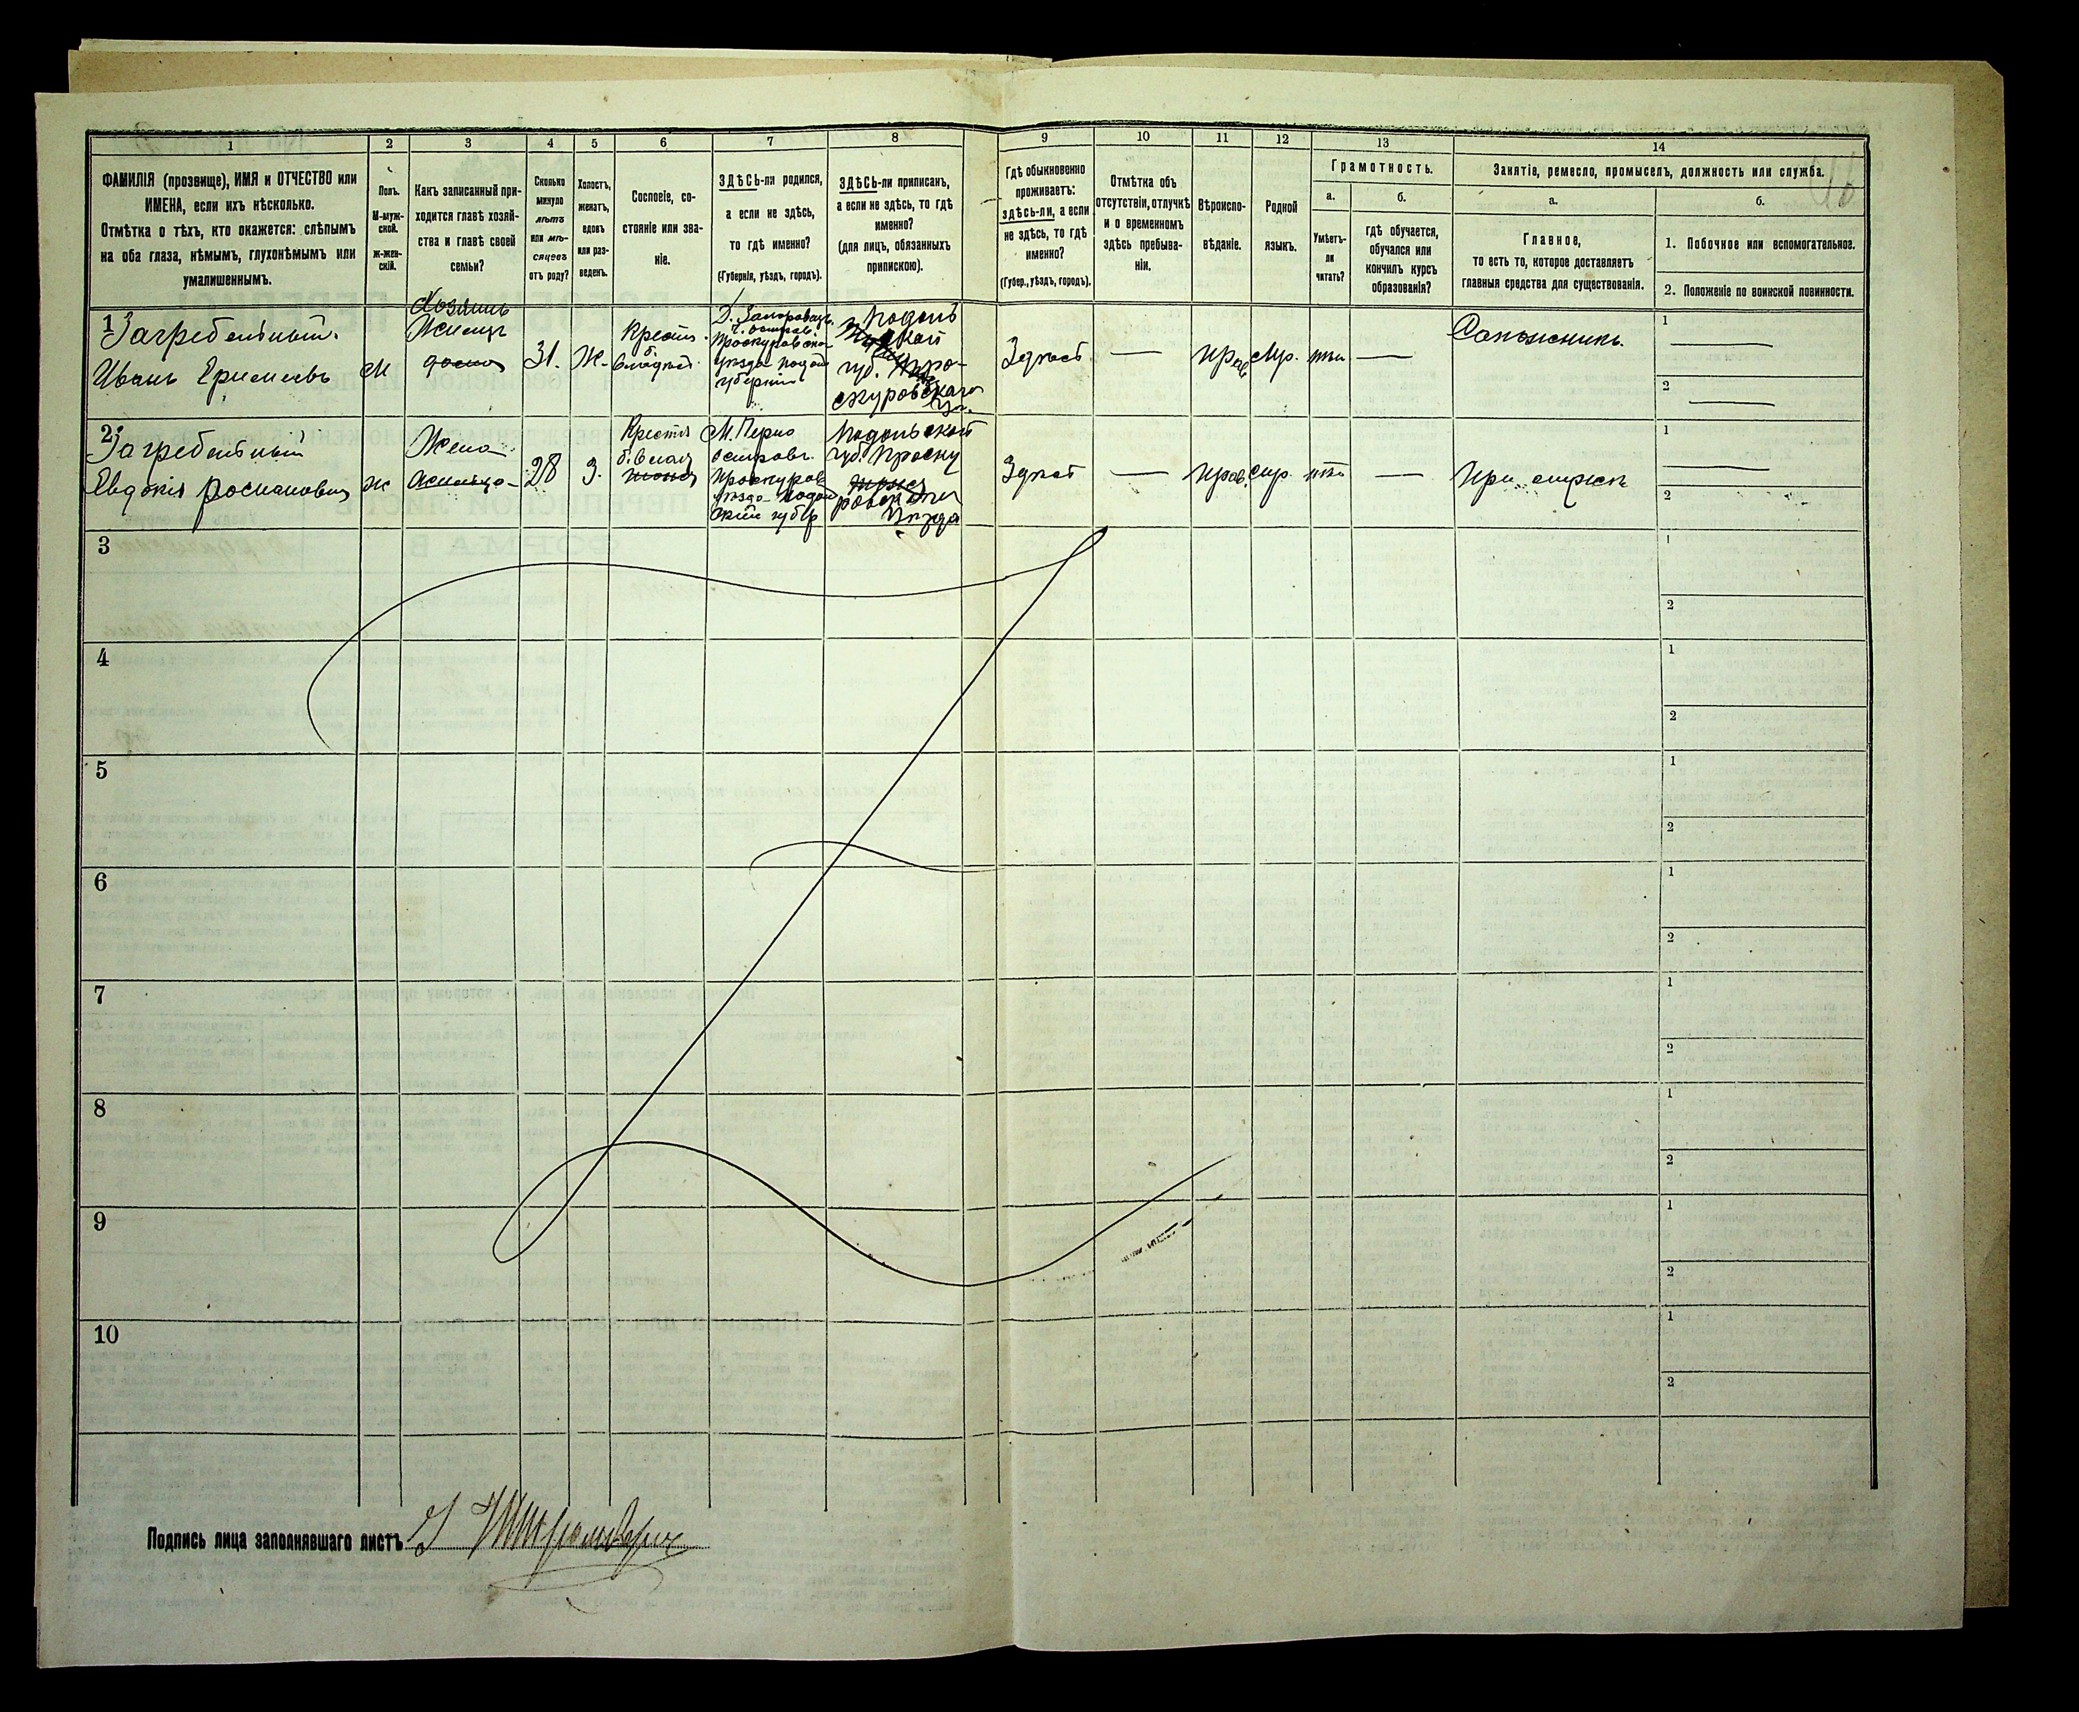 1 2 3 4 5 6 7 8 9 10 11 12 13 14
ФАМИЛІЯ (прозвище), ИМЯ и ОТЧЕСТВО или
ИМЕНА, если ихъ нѣсколько.
Отмѣтка о тѣхъ, кто окажется: слѣпымъ
на оба глаза, нѣмымъ, глухонѣмымъ или
умалишеннымъ.
Полъ.
М-муж-
ской.
Ж-жен-
скій.
Какъ записанный при-
ходится главѣ хозяй-
ства и главѣ своей
семьи?
Сколько
минуло
лѣтъ
или мѣ-
сяцевъ
отъ роду?
Холостъ,
женатъ,
вдовъ
или раз-
веденъ.
Сословіе, со-
стояніе или зва-
ніе.
ЗДѢСЬ-ли родился,
а если не здѣсь,
то гдѣ именно?
(Губернія, уѣздъ, городъ).
ЗДѢСЬ-ли приписанъ,
а если не здѣсь, то гдѣ
именно?
(для лицъ, обязанныхъ
припискою).
Гдѣ обыкновенно
проживаетъ:
здѣсь-ли, а если
не здѣсь, то гдѣ
именно?
(Губер., уѣздъ, городъ).
Отмѣтка объ
отсутствіи, отлучкѣ
и о временномъ
здѣсь пребыва-
ніи.
Вѣроиспо-
вѣданіе.
Родной
языкъ.
Грамотность.
а.
Умѣетъ-
ли
читать?
б.
гдѣ обучается,
обучался или
кончилъ курсъ
образованія?
Занятіе, ремесло, промыселъ, должность или служба.
а.
Главное,
то есть то, которое доставляетъ
главныя средства для существованія.
б.
1. Побочное или вспомогательное.
2. Положеніе по воинской повинности.
1 Загребельный
Иванъ
М
Хозяинъ
Жилецъ
31.
Ж.
Крестн.
б. владѣл.
Проскуровско
уѣзда Подол
губерніи
Подоль
ской
губ. Про-
скуровскаго
у.
Здѣсь
—
Прав.
Мр.
нѣт
—
Сапожникъ.
1
2
2 Загребельный
Евдокія Романовна
Ж
Жена
28
З.
Крестя
б. влад
М.
остров.
Проскуров
уѣзда Подол
ской губер
Подольской
губ. Проску
ровск
уѣзда
Здѣсь
—
Прав.
Мр.
нѣт
—
При мужѣ
1
2
3
1
2
4
1
2
5
1
2
6
1
2
7
1
2
8
1
2
9
1
2
10
1
2
Подпись лица заполнявшаго листъ